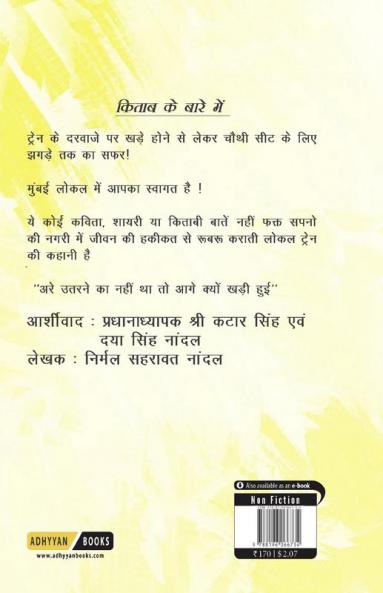 किताब के बारे में
ट्रेन के दरवाजे पर खड़े होने से लेकर चौथी सीट के लिए
झगड़े तक का सफर!
मुंबई लोकल में आपका स्वागत है !
ये कोई कविता, शायरी या किताबी बातें नहीं फक्त सपनो
की नगरी में जीवन की हकीकत से रूबरू कराती लोकल ट्रेन
की कहानी है
"अरे उतरने का नहीं था तो आगे क्यों खड़ी हुई"
आर्शीवाद : प्रधानाध्यापक श्री कटार सिंह एवं
दया सिंह नांदल
लेखक : निर्मल सहरावत नांदल
Also available as an e-book
Non Fiction
₹170 | $2.07
ADHYYAN BOOKS
www.adhyyanbooks.com